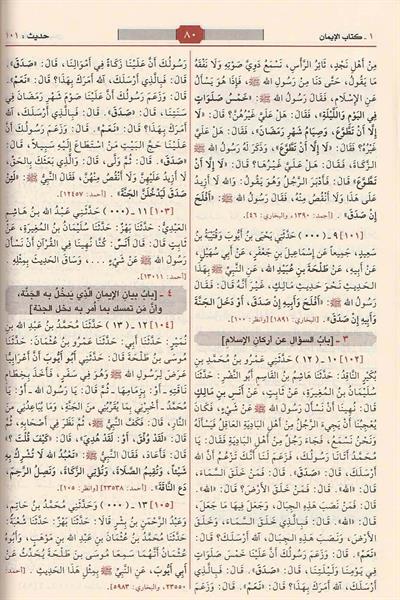 ١ - كتاب الإيمان
٨٠
حديث : ١٠١
مِنْ أَهْلِ نَجْدٍ، ثَائِرُ الرَّأْسِ، نَسْمَعُ دَوِيَّ صَوْتِهِ وَلَا نَفْقَهُ
مَا يَقُولُ، حَتَّى دَنَا مِنْ رَسُولِ اللهِ ﷺ، فَإِذَا هُوَ يَسْأَلُ
عَنِ الْإِسْلَامِ، فَقَالَ رَسُولُ اللهِ ﷺ: «خَمْسُ صَلَوَاتٍ
فِي الْيَوْمِ وَاللَّيْلَةِ»، فَقَالَ: هَلْ عَلَيَّ غَيْرُهُنَّ؟ قَالَ: «لَا
إِلَّا أَنْ تَطَّوَّعَ، وَصِيَامُ شَهْرِ رَمَضَانَ»، فَقَالَ: هَلْ عَلَيَّ
غَيْرُهُ؟ فَقَالَ: «لَا إِلَّا أَنْ تَطَّوَّعَ»، وَذَكَرَ لَهُ رَسُولُ اللهِ ﷺ
الزَّكَاةَ، فَقَالَ: هَلْ عَلَيَّ غَيْرُهَا؟ قَالَ: «لَا إِلَّا أَنْ
تَطَّوَّعَ» قَالَ: فَأَدْبَرَ الرَّجُلُ وَهُوَ يَقُولُ: وَاللهِ لَا أَزِيدُ
عَلَى هَذَا وَلَا أَنْقُصُ مِنْهُ، فَقَالَ رَسُولُ اللهِ ﷺ: «أَفْلَحَ
إِنْ صَدَقَ». [أحمد: ١٣٩٠، والبخاري: ٤٦].
[١٠١] ٩ - (٠٠٠) حَدَّثَنِي يَحْيَى بْنُ أَيُّوبَ وَقُتَيْبَةُ بْنُ
سَعِيدٍ، جَمِيعاً عَنْ إِسْمَاعِيلَ بْنِ جَعْفَرٍ، عَنْ أَبِي سُهَيْلٍ، عَنْ
أَبِيهِ، عَنْ طَلْحَةَ بْنِ عُبَيْدِ اللهِ، عَنِ النَّبِيِّ ﷺ، بِهَذَا
الْحَدِيثِ نَحْوَ حَدِيثِ مَالِكٍ، غَيْرَ أَنَّهُ قَالَ: فَقَالَ رَسُولُ اللهِ ﷺ:
«أَفْلَحَ وَأَبِيهِ إِنْ صَدَقَ، أَوْ دَخَلَ الْجَنَّةَ
وَأَبِيهِ إِنْ صَدَقَ». [البخاري: ١٨٩١] [وانظر: ١٠٠].
٣ - [بابُ السؤال عن أركانِ الإسلام]
[١٠٢] ١٠ - (١٢) حَدَّثَنِي عَمْرُو بْنُ مُحَمَّدِ بْنِ
بُكَيْرٍ النَّاقِدُ: حَدَّثَنَا هَاشِمُ بْنُ الْقَاسِمِ أَبُو النَّضْرِ: حَدَّثَنَا
سُلَيْمَانُ بْنُ الْمُغِيرَةِ، عَنْ ثَابِتٍ، عَنْ أَنَسِ بْنِ مَالِكٍ
قَالَ: نُهِينَا أَنْ نَسْأَلَ رَسُولَ اللهِ ﷺ عَنْ شَيْءٍ، فَكَانَ
يُعْجِبُنَا أَنْ يَجِيءَ الرَّجُلُ مِنْ أَهْلِ الْبَادِيَةِ الْعَاقِلُ، فَيَسْأَلَهُ
وَنَحْنُ نَسْمَعُ، فَجَاءَ رَجُلٌ مِنْ أَهْلِ الْبَادِيَةِ فَقَالَ: يَا
مُحَمَّدُ، أَتَانَا رَسُولُكَ، فَزَعَمَ لَنَا أَنَّكَ تَزْعُمُ أَنَّ اللهَ
أَرْسَلَكَ، قَالَ: «صَدَقَ». قَالَ: فَمَنْ خَلَقَ السَّمَاءَ؟
قَالَ: «اللهُ». قَالَ: فَمَنْ خَلَقَ الْأَرْضَ؟ قَالَ: «اللهُ». قَالَ:
فَمَنْ نَصَبَ هَذِهِ الْجِبَالَ، وَجَعَلَ فِيهَا مَا جَعَلَ؟
قَالَ: «اللهُ». قَالَ: فَبِالَّذِي خَلَقَ السَّمَاءَ، وَخَلَقَ
الْأَرْضَ، وَنَصَبَ هَذِهِ الْجِبَالَ، آللهُ أَرْسَلَكَ؟ قَالَ:
«نَعَمْ». قَالَ: وَزَعَمَ رَسُولُكَ أَنَّ عَلَيْنَا خَمْسَ صَلَوَاتٍ
فِي يَوْمِنَا وَلَيْلَتِنَا. قَالَ: «صَدَقَ». قَالَ: فَبِالَّذِي
أَرْسَلَكَ، آللهُ أَمَرَكَ بِهَذَا؟ قَالَ: «نَعَمْ». قَالَ: وَزَعَمَ
رَسُولُكَ أَنَّ عَلَيْنَا زَكَاةً فِي أَمْوَالِنَا، قَالَ: «صَدَقَ».
قَالَ: فَبِالَّذِي أَرْسَلَكَ، آللهُ أَمَرَكَ بِهَذَا؟ قَالَ: «نَعَمْ».
قَالَ: وَزَعَمَ رَسُولُكَ أَنَّ عَلَيْنَا صَوْمَ شَهْرِ رَمَضَانَ فِي
سَنَتِنَا، قَالَ: «صَدَقَ». قَالَ: فَبِالَّذِي أَرْسَلَكَ، آللهُ
أَمَرَكَ بِهَذَا؟ قَالَ: «نَعَمْ». قَالَ: وَزَعَمَ رَسُولُكَ أَنَّ
عَلَيْنَا حَجَّ الْبَيْتِ مَنِ اسْتَطَاعَ إِلَيْهِ سَبِيلاً، قَالَ:
«صَدَقَ». قَالَ: ثُمَّ وَلَّى، قَالَ: وَالَّذِي بَعَثَكَ بِالْحَقِّ،
لَا أَزِيدُ عَلَيْهِنَّ وَلَا أَنْقُصُ مِنْهُنَّ. فَقَالَ النَّبِيُّ ﷺ: «لَئِنْ
صَدَقَ لَيَدْخُلَنَّ الْجَنَّةَ». [أحمد: ١٢٤٥٧].
[١٠٣] ١١ - (٠٠٠) حَدَّثَنِي عَبْدُ اللهِ بْنُ هَاشِمٍ
الْعَبْدِيُّ: حَدَّثَنَا بَهْزٌ: حَدَّثَنَا سُلَيْمَانُ بْنُ الْمُغِيرَةِ، عَنْ
ثَابِتٍ قَالَ: قَالَ أَنَسٌ: كُنَّا نُهِينَا فِي الْقُرْآنِ أَنْ نَسْأَلَ
رَسُولَ اللهِ ﷺ عَنْ شَيْءٍ... وَسَاقَ الْحَدِيثَ بِمِثْلِهِ.
[أحمد: ١٣٠١١].
٤ - [بابُ بيانِ الإيمانِ الَّذِي يَدخُلُ به الجَنَّةَ،
وأنَّ مَن تمسك بما أُمِر به دخل الجنة]
[١٠٤] ١٢ - (١٣) حَدَّثَنَا مُحَمَّدُ بْنُ عَبْدِ اللهِ بْنِ
نُمَيْرٍ: حَدَّثَنَا أَبِي: حَدَّثَنَا عَمْرُو بْنُ عُثْمَانَ: حَدَّثَنَا
مُوسَى بْنُ طَلْحَةَ قَالَ: حَدَّثَنِي أَبُو أَيُّوبَ أَنَّ أَعْرَابِيًّا
عَرَضَ لِرَسُولِ اللهِ ﷺ وَهُوَ فِي سَفَرٍ، فَأَخَذَ بِخِطَامِ
نَاقَتِهِ، أَوْ: بِزِمَامِهَا - ثُمَّ قَالَ: يَا رَسُولَ اللهِ، أَوْ: يَا
مُحَمَّدُ - أَخْبِرْنِي بِمَا يُقَرِّبُنِي مِنَ الْجَنَّةِ، وَمَا يُبَاعِدُنِي مِنَ
النَّارِ. قَالَ: فَكَفَّ النَّبِيُّ ﷺ، ثُمَّ نَظَرَ فِي أَصْحَابِهِ، ثُمَّ
قَالَ: «لَقَدْ وُفِّقَ، أَوْ: لَقَدْ هُدِيَ»، قَالَ: «كَيْفَ قُلْتَ؟»
قَالَ: فَأَعَادَ، فَقَالَ النَّبِيُّ ﷺ: «تَعْبُدُ اللهَ لَا تُشْرِكُ بِهِ
شَيْئاً، وَتُقِيمُ الصَّلَاةَ، وَتُؤْتِي الزَّكَاةَ، وَتَصِلُ الرَّحِمَ،
دَعِ النَّاقَةَ». [أحمد: ٢٣٥٣٨] [وانظر: ١٠٥].
[١٠٥] ١٣ - (٠٠٠) وحَدَّثَنِي مُحَمَّدُ بْنُ حَاتِمٍ،
وَعَبْدُ الرَّحْمَنِ بْنُ بِشْرٍ قَالَا: حَدَّثَنَا بَهْزٌ: حَدَّثَنَا شُعْبَةُ:
حَدَّثَنَا مُحَمَّدُ بْنُ عُثْمَانَ بْنِ عَبْدِ اللهِ بْنِ مَوْهَبٍ وَأَبُوهُ
عُثْمَانُ أَنَّهُمَا سَمِعَا مُوسَى بْنَ طَلْحَةَ يُحَدِّثُ عَنْ
أَبِي أَيُّوبَ، عَنِ النَّبِيِّ ﷺ بِمِثْلِ هَذَا الْحَدِيثِ. [أحمد:
٢٣٥٥٠، والبخاري: ٥٩٨٣].